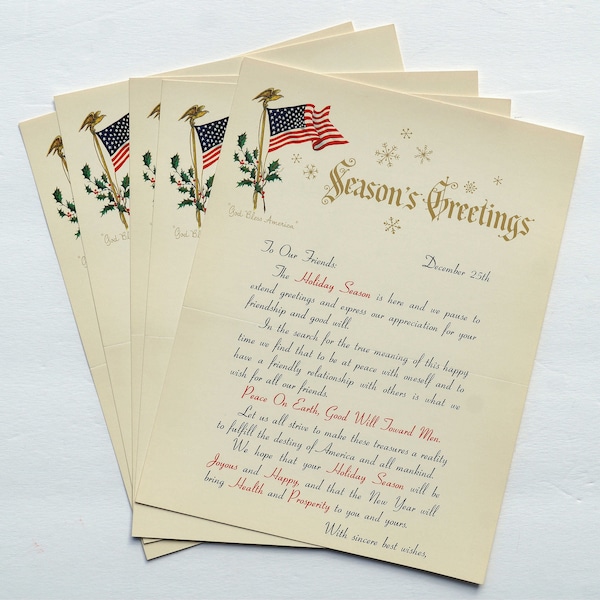 Season's Greetings
"God Bless America."
To Our Friends: December 25th
The Holiday Season is here and we pause to
extend greetings and express our appreciation for your
friendship and good will.
In the search for the true meaning of this happy
time we find that to be at peace with oneself and to
have a friendly relationship with others is what we
wish for all our friends.
Peace On Earth, Good Will Toward Men.
Let us all strive to make these treasures a reality
to fulfill the destiny of America and all mankind.
We hope that your Holiday Season will be
Joyous and Happy, and that the New Year will
bring Health and Prosperity to you and yours.
With sincere best wishes,
"God Bl
"God Bless